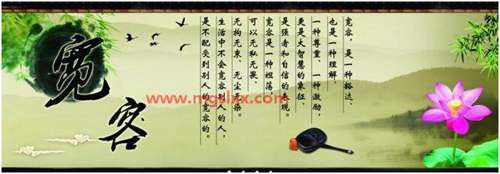 宽容
宽容,是一种豁达、
也是一种理解、
一种尊重、一种激励,
更是大智慧的象征、
是强者和自信的表现。
宽容是一种坦荡,
可以无私无畏、
无拘无束、无尘无染。
生活中不会宽容别人的人,
是不配受到别人的宽容的。